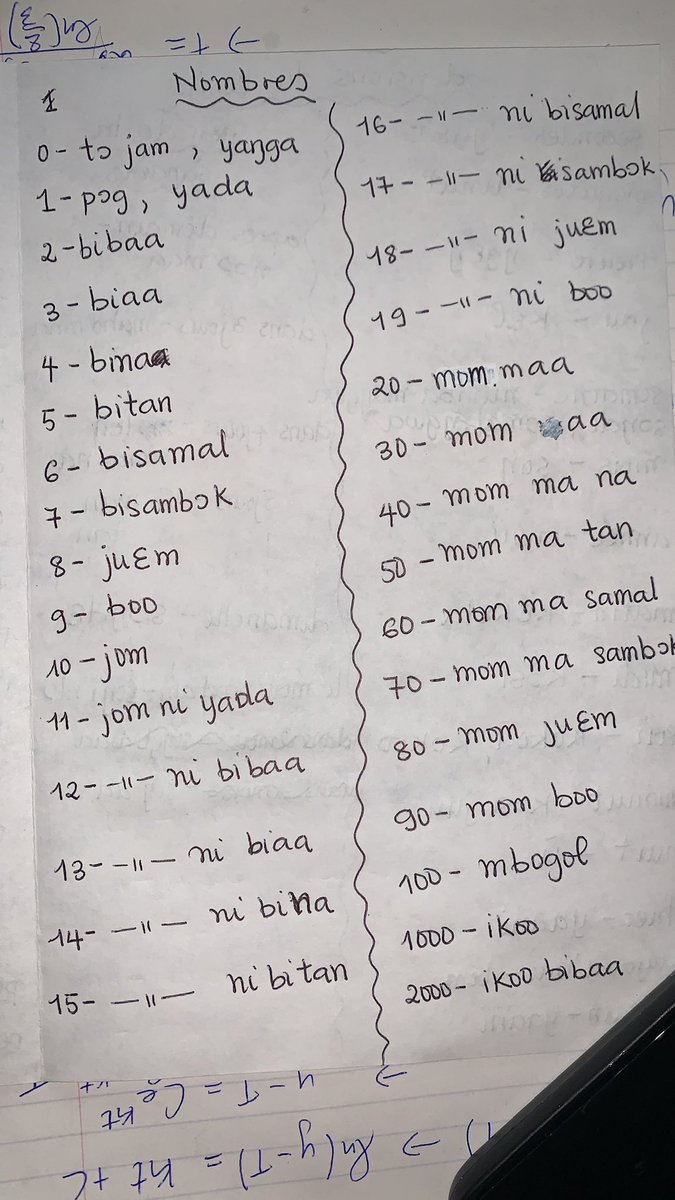 1
Nombres
0- tɔ jam , yaŋga
1- pɔg, yada
2-bibaa
3- biaa
4- bina
5- bitan
6- bisamal
7- bisambɔk
8- juɛm
9- boo
10-jom
11-jom ni yada
12- -॥- ni bibaa
13- -॥- ni biaa
14- -॥- ni bina
15- -॥- ni bitan
16- -॥- ni bisamal
17- -॥- ni bisambɔk
18- -॥- ni juɛm
19- -॥- ni boo
20- mom.maa
30- mom aa
40- mom ma na
50 -mom ma tan
60-mom ma samal
70-mom ma sambɔk
80- mom juɛm
90- mom boo
100- mbogol
1000-ikoo
2000-ikoo bibaa
→ t =
ln(8/3)
→ y-T = Ce^kt
→ ln(y-T) = kt + c